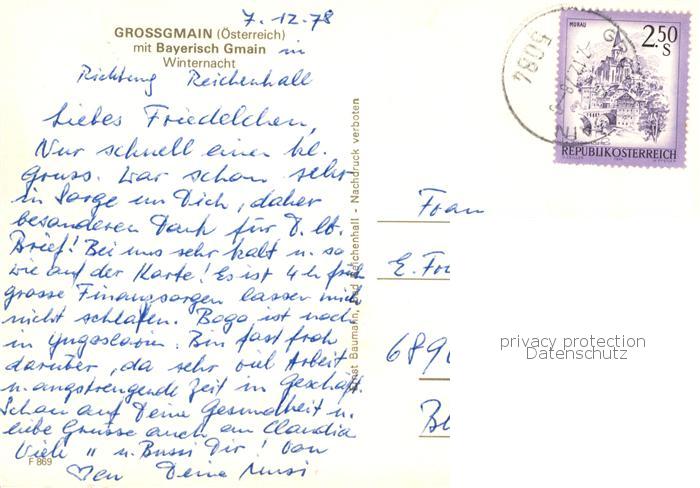 7.12.78
GROSSGMAIN (Österreich)
mit Bayerisch Gmain in
Winternacht
Richtung Reichenhall
Liebes Friedelchen,
Nur schnell einen kl.
Gruss. War schon sehr
in Sorge um Dich, daher
besonderen Dank für D. lb.
Brief! Bei uns sehr kalt u. so
wie auf der Karte! Es ist 4 h früh
grosse Finanzsorgen lassen mich
nicht schlafen. Bogo ist noch
in Jugoslavien. Bin fast froh
darüber, da sehr viel Arbeit
u. angstrengende Zeit in Geschäft.
Schau auf Deine Gesundheit u.
liebe Grüsse auch an Claudia
Viele " u. Bussi Dir! Von
Deine Mussi
F 869
Ernst Baumann, Bad Reichenhall - Nachdruck verboten
MURAU
2.50
S
REPUBLIK ÖSTERREICH
5084
Frau
E. Fr
689
Bl
privacy protection
Datenschutz